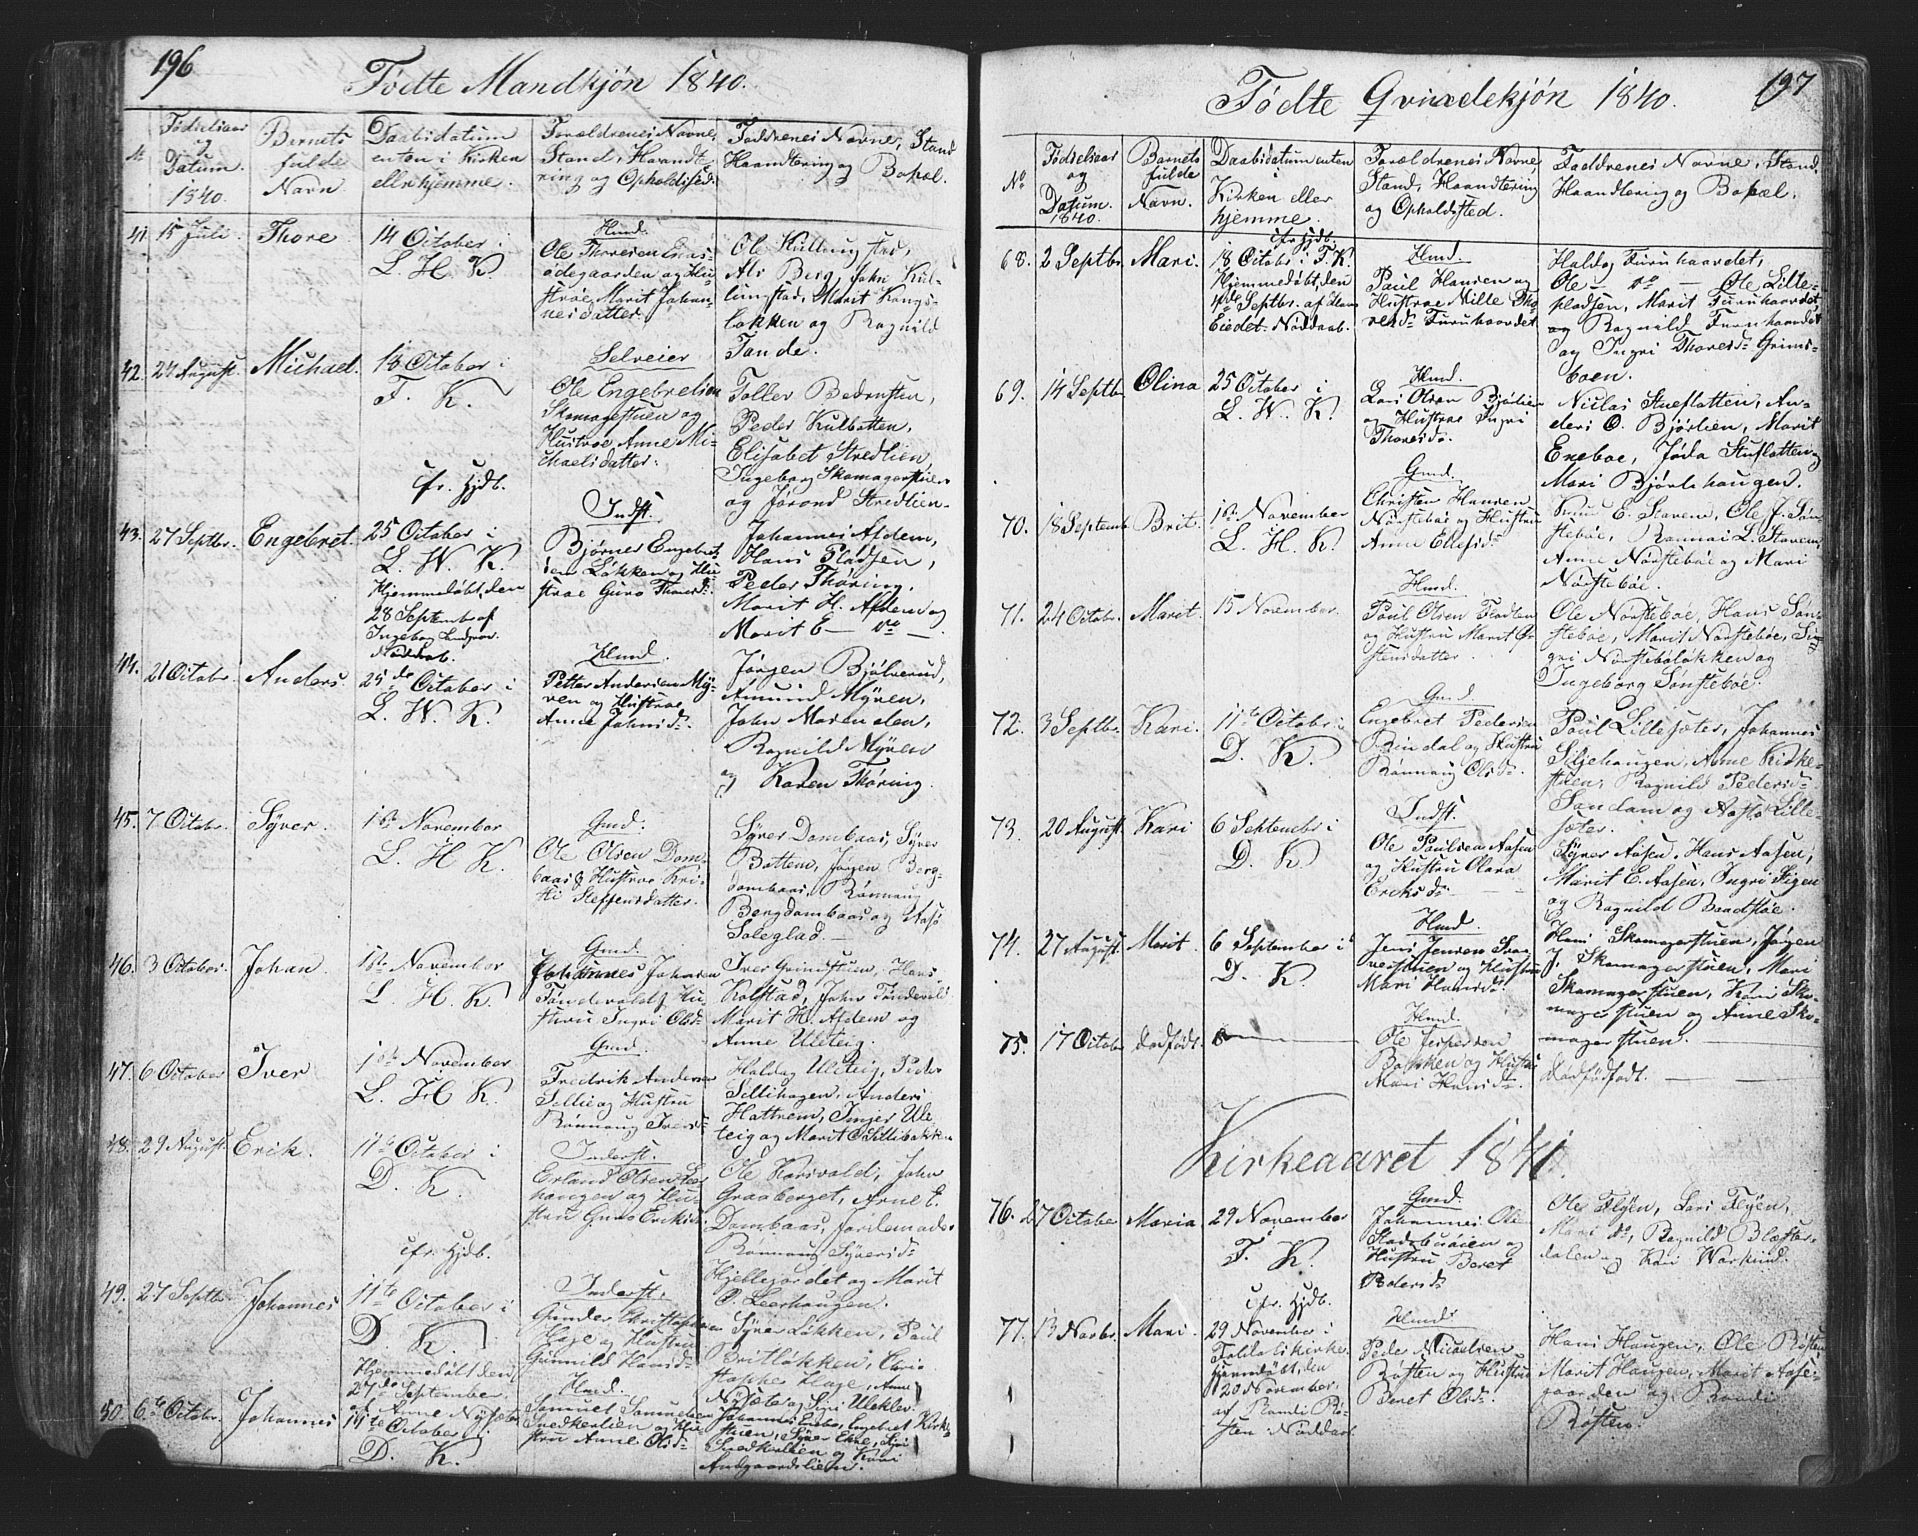 196
Fødte Mandkjøn 1840.
№
Fødselsaar og Datum. 1840.
Barnets fulde Navn
Daabsdatum enten i Kirken eller hjemme.
Forældrenes Navne, Stand, Haandtering og Opholdssted.
Faddrenes Navne, Stand, Haandtering og Bopæl.
41
15 Juli
Thore
14 October i
L. H. K.
Hmd.
Ole Thoresen
ødegaarden og Hu-
stroe Marit Johan-
nesdatter.
Ole Kullingstad,
Als Berg, John Kul-
lingstad, Marit Kongs-
løkken og Ragnild
Tande.
42.
24 August.
Michael.
18 October i
F. K.
Selveier
Ole Engebretsen
Skomagerstuen og
Hustroe Anne Mi-
chaelsdatter.
Toller
Peder Kulbotten,
Elisabet Stredlien
Ingeborg Skomagerstuen
og Jørond Stredlien.
43.
27 Septbr.
Engebret.
cfr. Hjdb.
25 October i
L. W. K.
Hjemmedøbt, den
28 September af
Ingeborg
Nøddaab.
Indst.
Bjørner Engebret-
sen Løkken og Hu-
stroe Guro Thoresd:
Johannes Afdem,
Hans Pladsen,
Peder Thøring,
Marit H. Afdem og
Marit E — do —.
44.
21 Octobr.
Anders.
25de October i
L. W. K.
Hmd.
Petter Andersen My-
ren og Hustroe
Anne Johnsd:
Jørgen Bjølverud,
Amund Myren,
John Morendalen,
Ragnild Myren
og Karen Thøring.
45.
7 Octobr.
Syver.
1ste November
L. H. K.
Gmd.
Ole Olsen Dom-
baas & Hustroe Kri-
sti Steffensdatter.
Syver Dombaas, Syver
Bottem, Jørgen Berg-
dombaas, Rønnaug
Bergdombaas og Aasø
Soleglad.
46.
3 October.
Johan.
1ste November
L. H. K.
Gmd.
Johannes Johansen
Tøndevold & Hu-
stru Ingri Olsd:
Iver Grindstuen, Hans
Kolstad, John Tøndevold
Marit H. Afdem og
Anne Ulleig.
47.
6 October
Iver
1ste November
L. H. K.
Gmd.
Fredrik Andersen
Sellie og Hustru
Rønnaug Iversd:
Haldog Ulleig, Peder
Sellihagen, Anders
Hattrem, Inger Ul-
leig og Marit Sellibakken
48.
29 August.
Erik.
11te October i
D. K.
Inderst.
Erland Olsen Leer-
haugen og Hu-
stru Guro Eriksd:
Ole Korsvold, John
Graaberget, Arne E.
Dombaas, Jordemoder
Rønnaug Syversd:
Hjellejordet og Marit
O. Leerhaugen.
49.
27 Septbr.
Johannes
cfr. Hjdb.
11te October i
D. K.
Hjemmedøbt den
27de September
af Anne Nysæter
Inderst.
Gunder Christophersen
Hage og Hustru
Gunnild Hansd:
Syver Løkken, Paul
Britløkken, Chri-
stophe Hage, Anne
Nysæte og Siri Ulekler.
50.
6te Octobr.
Johannes
11te October i
D. K.
Hmd.
Samuel Samuelsen
Snedkerlien og Hu-
stru Anne Olsd:
Johannes Enebo, Engebret Kirk-
stuen, Syver Ekre, Siri
Snedkerlien og Kari
Andgaardslien.
197
Fødte Qvindekjøn 1840.
№
Fødselsaar og Datum. 1840.
Barnets fulde Navn.
Daabsdatum enten i Kirken eller hjemme.
Forældrenes Navne, Stand, Haandtering og Opholdsted.
Faddrenes Navne, Stand, Haandtering og Bopæl.
68.
2 Septbr.
Mari.
cfr. Hjdb.
18 Octobr i F. K.
Hjemmedøbt, den
4de Septbr. af Hans
Eiedet. Nøddaab.
Hmd.
Paul Hansen og
Hustroe Mille Tho-
resd: Furuhaavdet
Haldog Furuhaavdet,
Ole — do — Ole Lille-
pladsen, Marit Furuhaavdet
og Ragnild Furuhaavdet
og Ingri Thoresd: Grims-
boen.
69.
14 Septbr.
Olina
25 October i
L. W. K.
Hmd.
Lars Olsen Bjørlien
og Hustroe Ingri
Thoresd:
Niclas Stueflotten, An-
ders O. Bjørlien, Marit
Eneboe, Jøda Stuflotten og
Mari Bjørlihaugen.
70.
18 Septemb.
Brit.
1ste November
L. H. K.
Gmd.
Christen Hansen
Nørstebøe og Hustru
Anne Ellefsd:
E. Stavem, Ole J. Søn-
stebøe, Rannei L. Stavem,
Anne Nørstebøe og Mari
Nørstebøe.
71.
24 Octobr.
Marit.
15 November.
Hmd.
Poul Olsen Flotten
og Hustru Marit Ør-
stensdatter.
Ole Nørstebøe, Hans Søn-
stebøe, Marit Nørstebøe, Si-
gri Nørstebøløkken og
Ingeborg Sønstebøe.
72.
3 Septbr.
Kari.
11te Octobr i
D. K.
Gmd.
Engebret Pedersen
Rindal og Hustru
Rønnaug Olsd:
Poul Lillesæter, Johannes
Siljehaugen, Anne Kirke-
stuen, Ragnild Pedersd:
Sandam og Aasø Lille-
sæter.
73.
20 August.
Kari
6 Septembr i
D. K.
Indst.
Ole Poulsen Aasen
og Hustru Olara
Eriksd:
Syver Aasen, Hans Aasen,
Marit E. Aasen, Ingri Stigen
og Ragnild Baadstøe.
74.
27 August.
Marit.
6 September i
D. K.
Hmd.
Jens Jensen
og Hustru
Mari Hansd:
Hans Skomagerstuen, Jørgen
J. Skomagerstuen, Mari
Skomagerstuen, Kari Sko-
magerstuen og Anne Sko-
magerstuen.
75.
17 October
dødfødt.
Hmd.
Ole Jespersen
Bakken og Hustru
Mari Hansd:
dødfødt.
Kirkeaaret 1841.
76.
27 October
Maria
29 November
F. K.
Gmd.
Johannes Ole
Stadsbuøien og
Hustru Beret
Pedersd:
Ole Flyen, Lars Flyen,
Mari do, Ragnild Blæster-
dalen og Kari Workind.
77.
13 Novbr.
Mari.
cfr. Hjdb.
29 November i
Kirke.
Hjemdøbt, den
20 November.
af Randi Rø-
sten Nøddaab.
Hmd.
Peder Nicolaisen
Røsten og Hustru
Beret Olsd:
Hans Haugen, Ole Røsten
Marit Haugen, Marit Aase-
gaarden og Randi
Røsten.